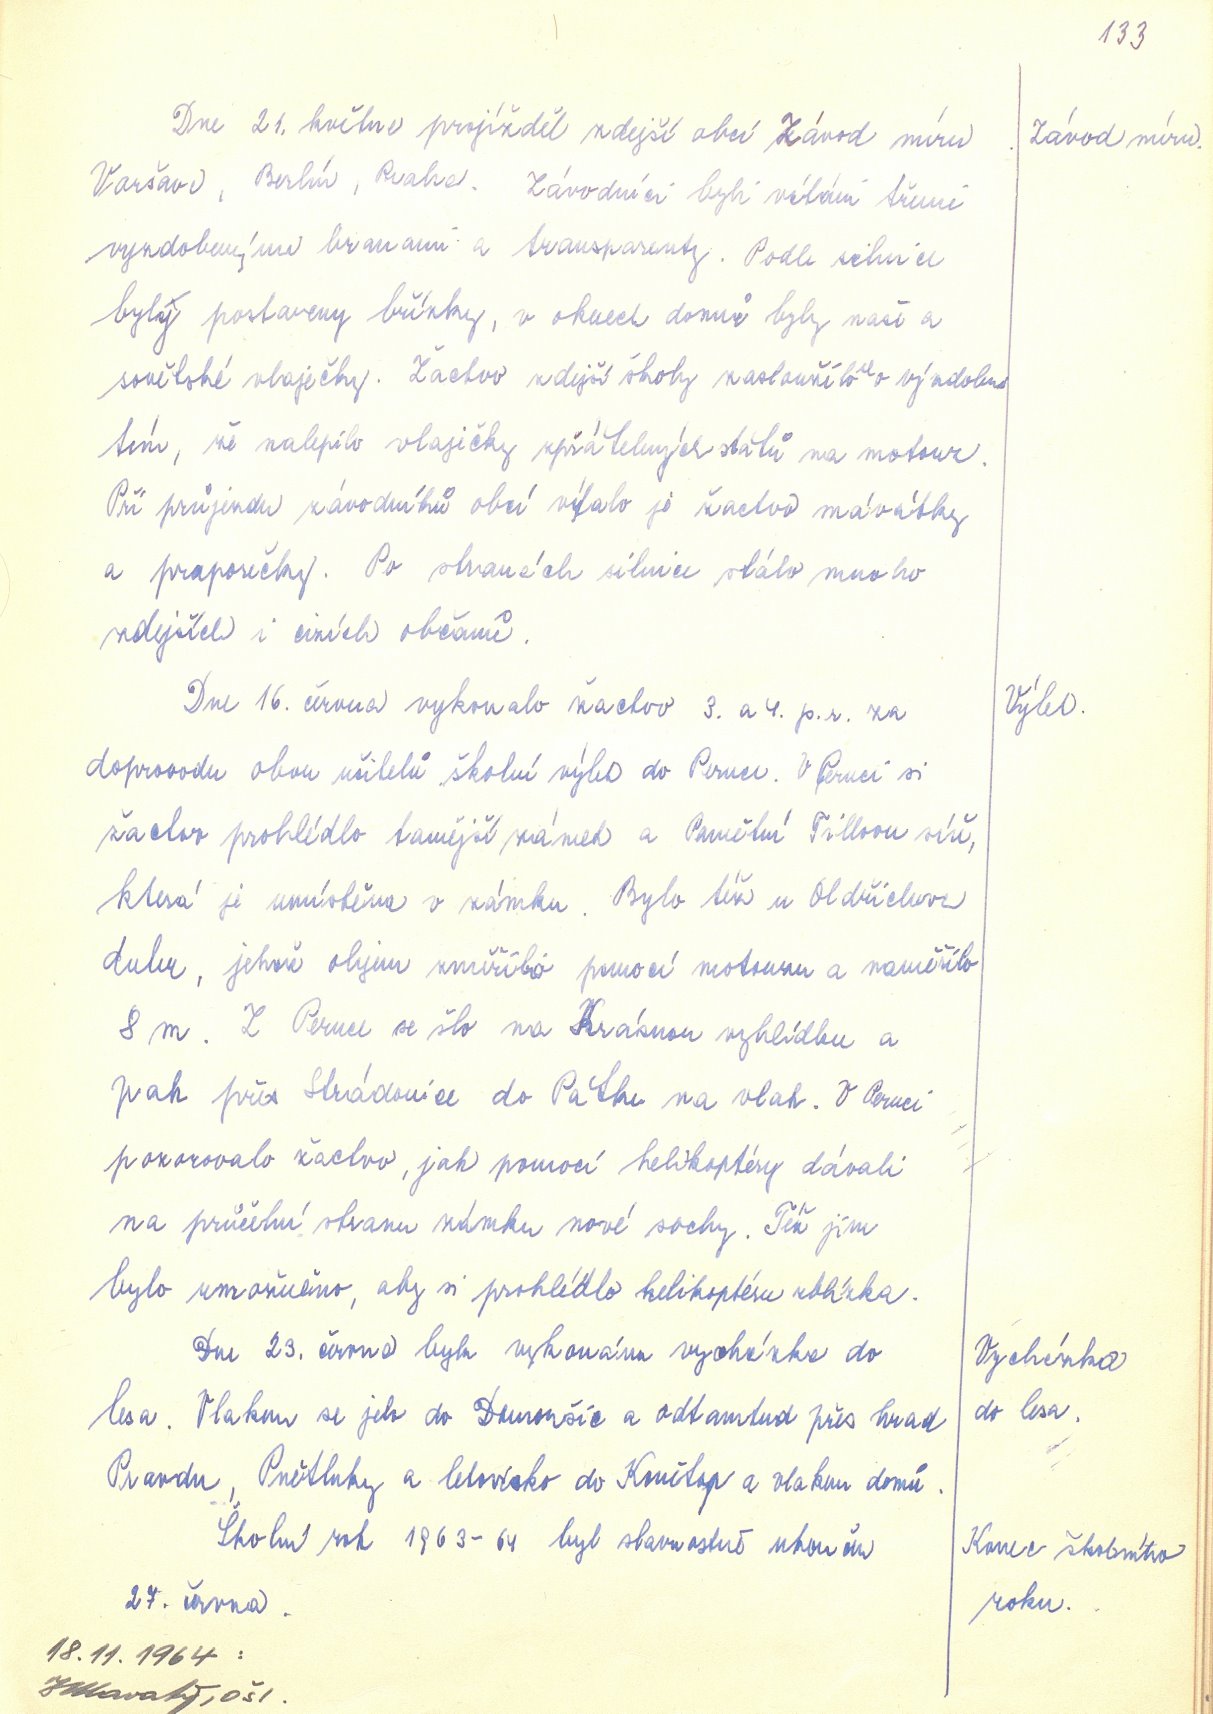 133
Dne 21. května projížděl zdejší obcí Závod míru
Závod míru.
Varšava, Berlín, Praha. Závodníci byli vítáni třemi
vyzdobenými branami a transparenty. Podle silnice
byly postaveny břízky, v oknech domů byly naše a
sovětské vlaječky. Žactvo zdejší školy zasloužilo se o výzdobu
tím, že nalepilo vlaječky spřátelených států na motouz.
Při průjezdu závodníků obcí vítalo je žactvo mávátky
a praporečky. Po stranách silnice stálo mnoho
zdejších i cizích občanů.
Dne 16. června vykonalo žactvo 3. a 4. p. r. za
Výlet.
doprovodu obou učitelů školní výlet do Peruce. V Peruci si
žactvo prohlédlo tamější zámek a Pamětní Fillovu síň,
která je umístěna v zámku. Bylo též u Oldřichova
dubu, jehož objem změřilo pomocí motouzu a naměřilo
8 m. Z Peruce se šlo na Krásnou vyhlídku a
pak přes Stradonice do Pátku na vlak. V Peruci
pozorovalo žactvo, jak pomocí helikoptéry dávali
na průčelní stranu zámku nové sochy. Též jim
bylo umožněno, aby si prohlédlo helikoptéru zblízka.
Dne 23. června byla vykonána vycházka do
Vycházka
lesa. Vlakem se jelo do Domoušic a odtamtud přes hrad
do lesa.
Pravdu, Pnětluky a letovisko do Konětop a vlakem domů.
Školní rok 1963-64 byl slavnostně ukončen
Konec školního
27. června.
roku.
18.11.1964:
Hlavatý, OŠI.